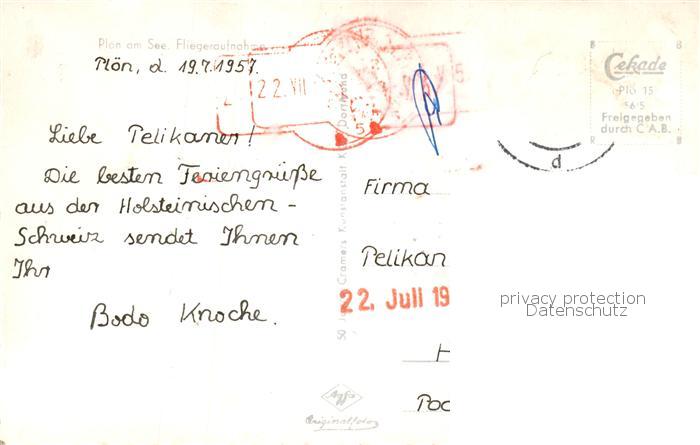 Plön am See. Fliegeraufnahme
Plön, d. 19.7.1957.
Liebe Pelikaner!
Die besten Feriengrüße
aus der Holsteinischen-
Schweiz sendet Ihnen
Ihr
Bodo Knoche.
50 Cramers Kunstanstalt Dortmund
22.VII
5
Agfa
Originalfoto
Cekade
Plö 15
56/5
Freigegeben
durch C.A.B.
B
B
R
R
d
Firma
Pelikan
22. Juli 19
H
Poc
privacy protection
Datenschutz